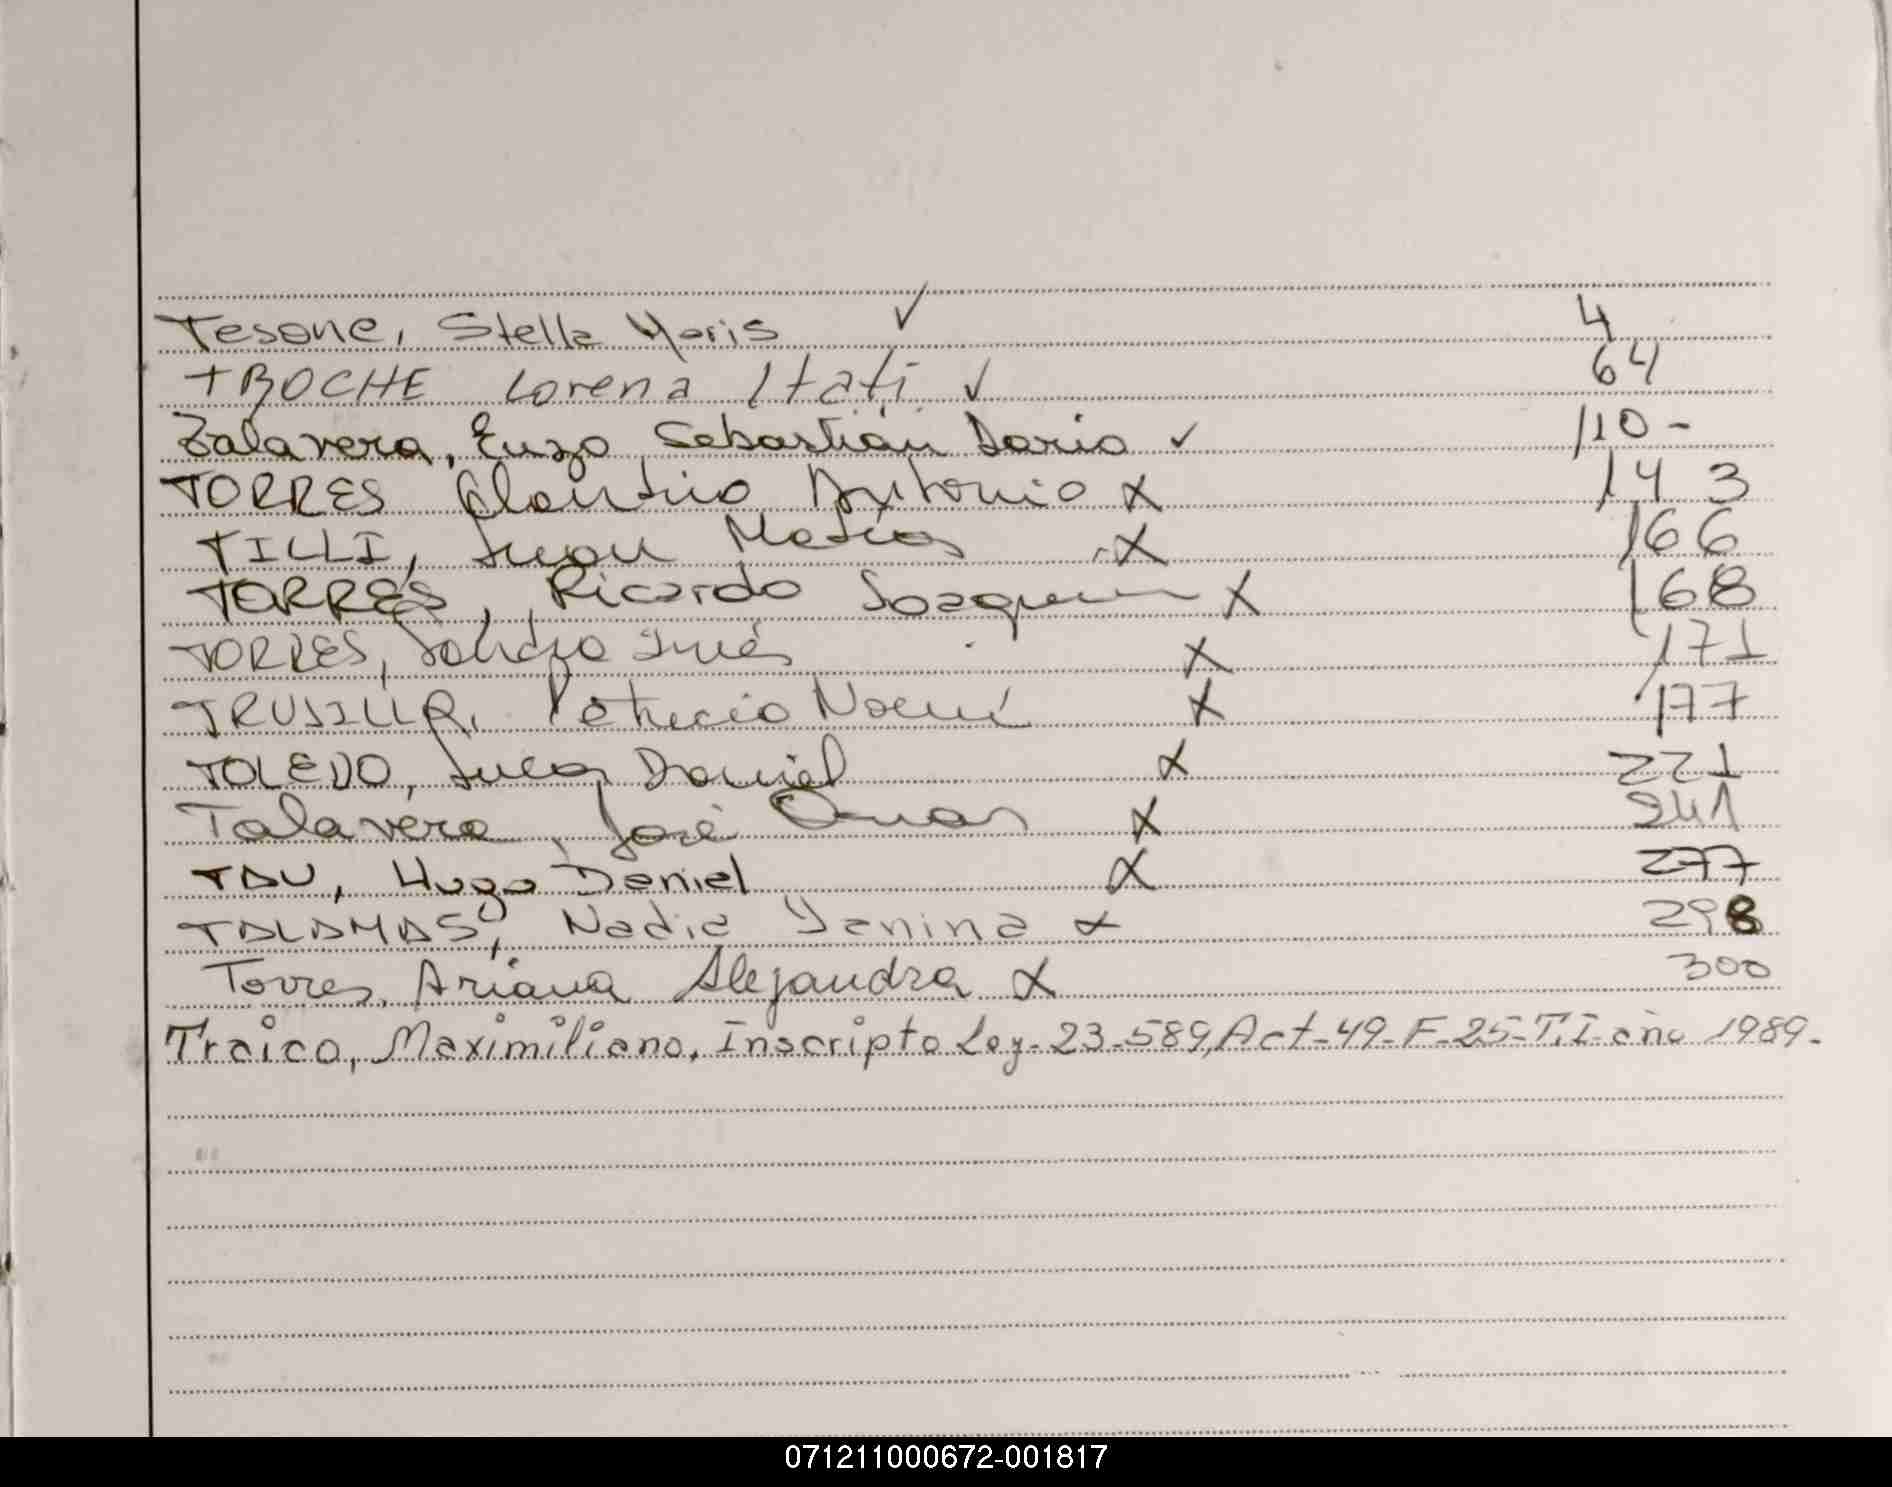 Tesone, Stella Maris ✓ 4
TROCHE Lorena Itatí ✓ 64
Talavera, Enzo Sebastián Dario ✓ 110-
TORRES Antonio X 143
TILLI, Juan Matías X 166
TORRES, Ricardo Joaquín X 168
TORRES, Sandra Inés X 171
TRUJILLO, Patricia Noemí X 177
TOLEDO, Lucas Daniel X 221
Talavera, José Omar X 241
TAU, Hugo Daniel X 277
TALAMAS, Nadia Yanina X 298
Torres, Ariana Alejandra X 300
Traico, Maximiliano, Inscripto Ley-23-589, Act-49-F-25-T.I-año 1989-
071211000672-001817